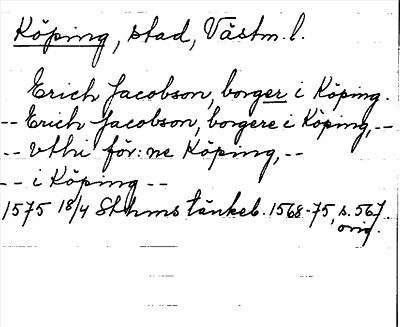 Köping, stad, Västm. l.
Erich Jacobson, borger i Köping.
-- Erich Jacobson, borgere i Köping, --
-- vthi för:ne Köping, --
-- i Köping --
1575 18/4 Sthms tänkeb. 1568-75, s. 567
orig.